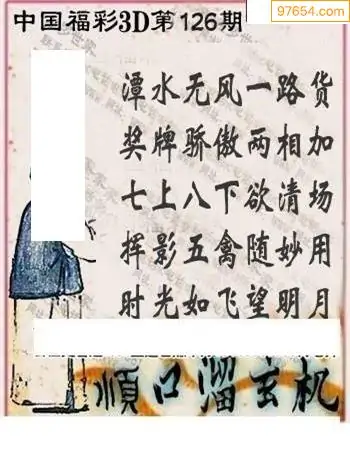 97654.com
中国福彩3D第126期
潭水无风一路货
奖牌骄傲两相加
七上八下欲清场
挥影五禽随妙用
时光如飞望明月
顺口溜玄机